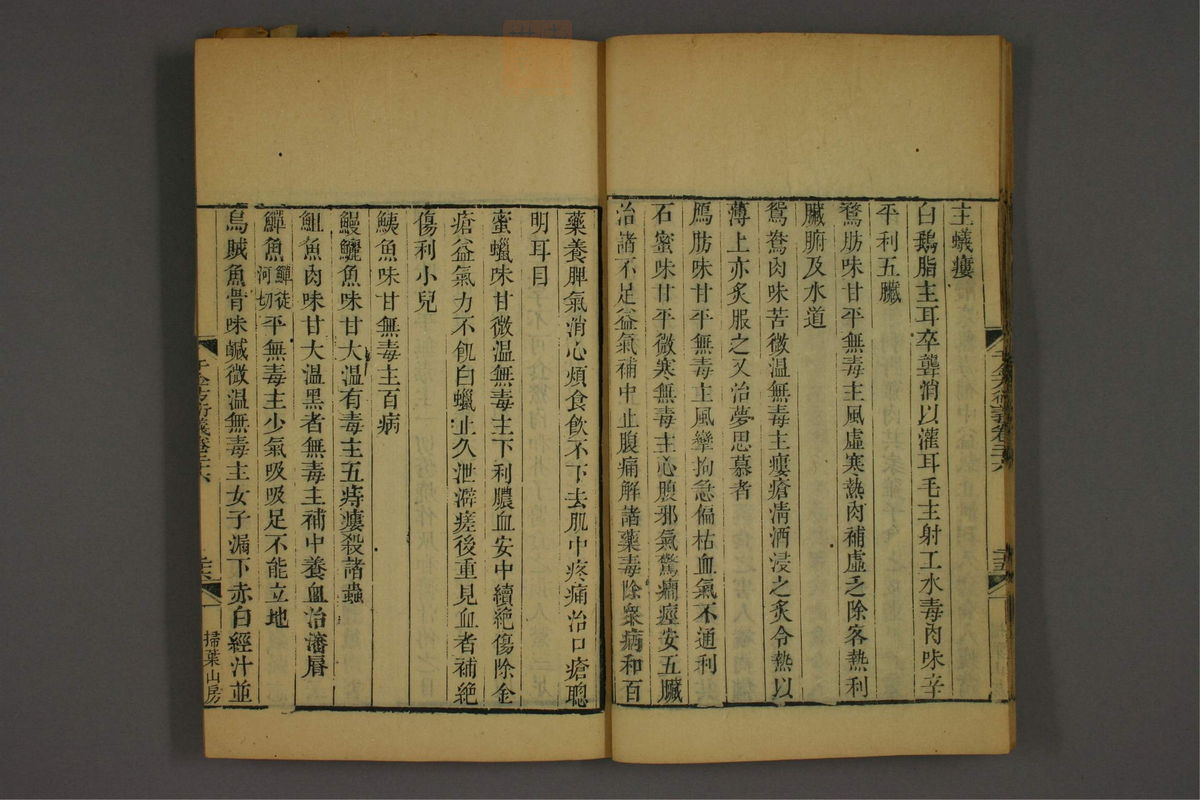 主蟻瘻
白鵝脂主耳卒聾消以灌耳毛主射工水毒肉味辛
平利五臟
鶩肪味甘平無毒主風虛寒熱肉補虛乏除客熱利
臟腑及水道
鴛鴦肉味苦微溫無毒主瘻瘡清酒浸之炙令熱以
薄上亦炙服之又治夢思慕者
鴈肪味甘平無毒主風攣拘急偏枯血氣不通利
石蜜味甘平微寒無毒主心腹邪氣驚癇痙安五臟
治諸不足益氣補中止腹痛解諸藥毒除衆病和百
千金方衍義卷二十六
藥養脾氣消心煩食飲不下去肌中疼痛治口瘡聰
明耳目
蜜蠟味甘微溫無毒主下利膿血安中續絕傷除金
瘡益氣力不飢白蠟止久泄澼瘥後重見血者補絕
傷利小兒
鮧魚味甘無毒主百病
鰻鱺魚味甘大溫有毒主五痔瘻殺諸蟲
䱇魚肉味甘大溫黑者無毒主補中養血治瀋脣
鱓魚鱓徒河切平無毒主少氣吸吸足不能立地
烏賊魚骨味鹹微溫無毒主女子漏下赤白經汁並
千金方衍義卷二十六
掃葉山房